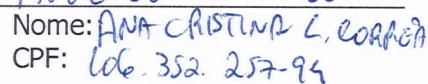 Nome: ANA CRISTINA L. CORREA
CPF: 106.352.257-94